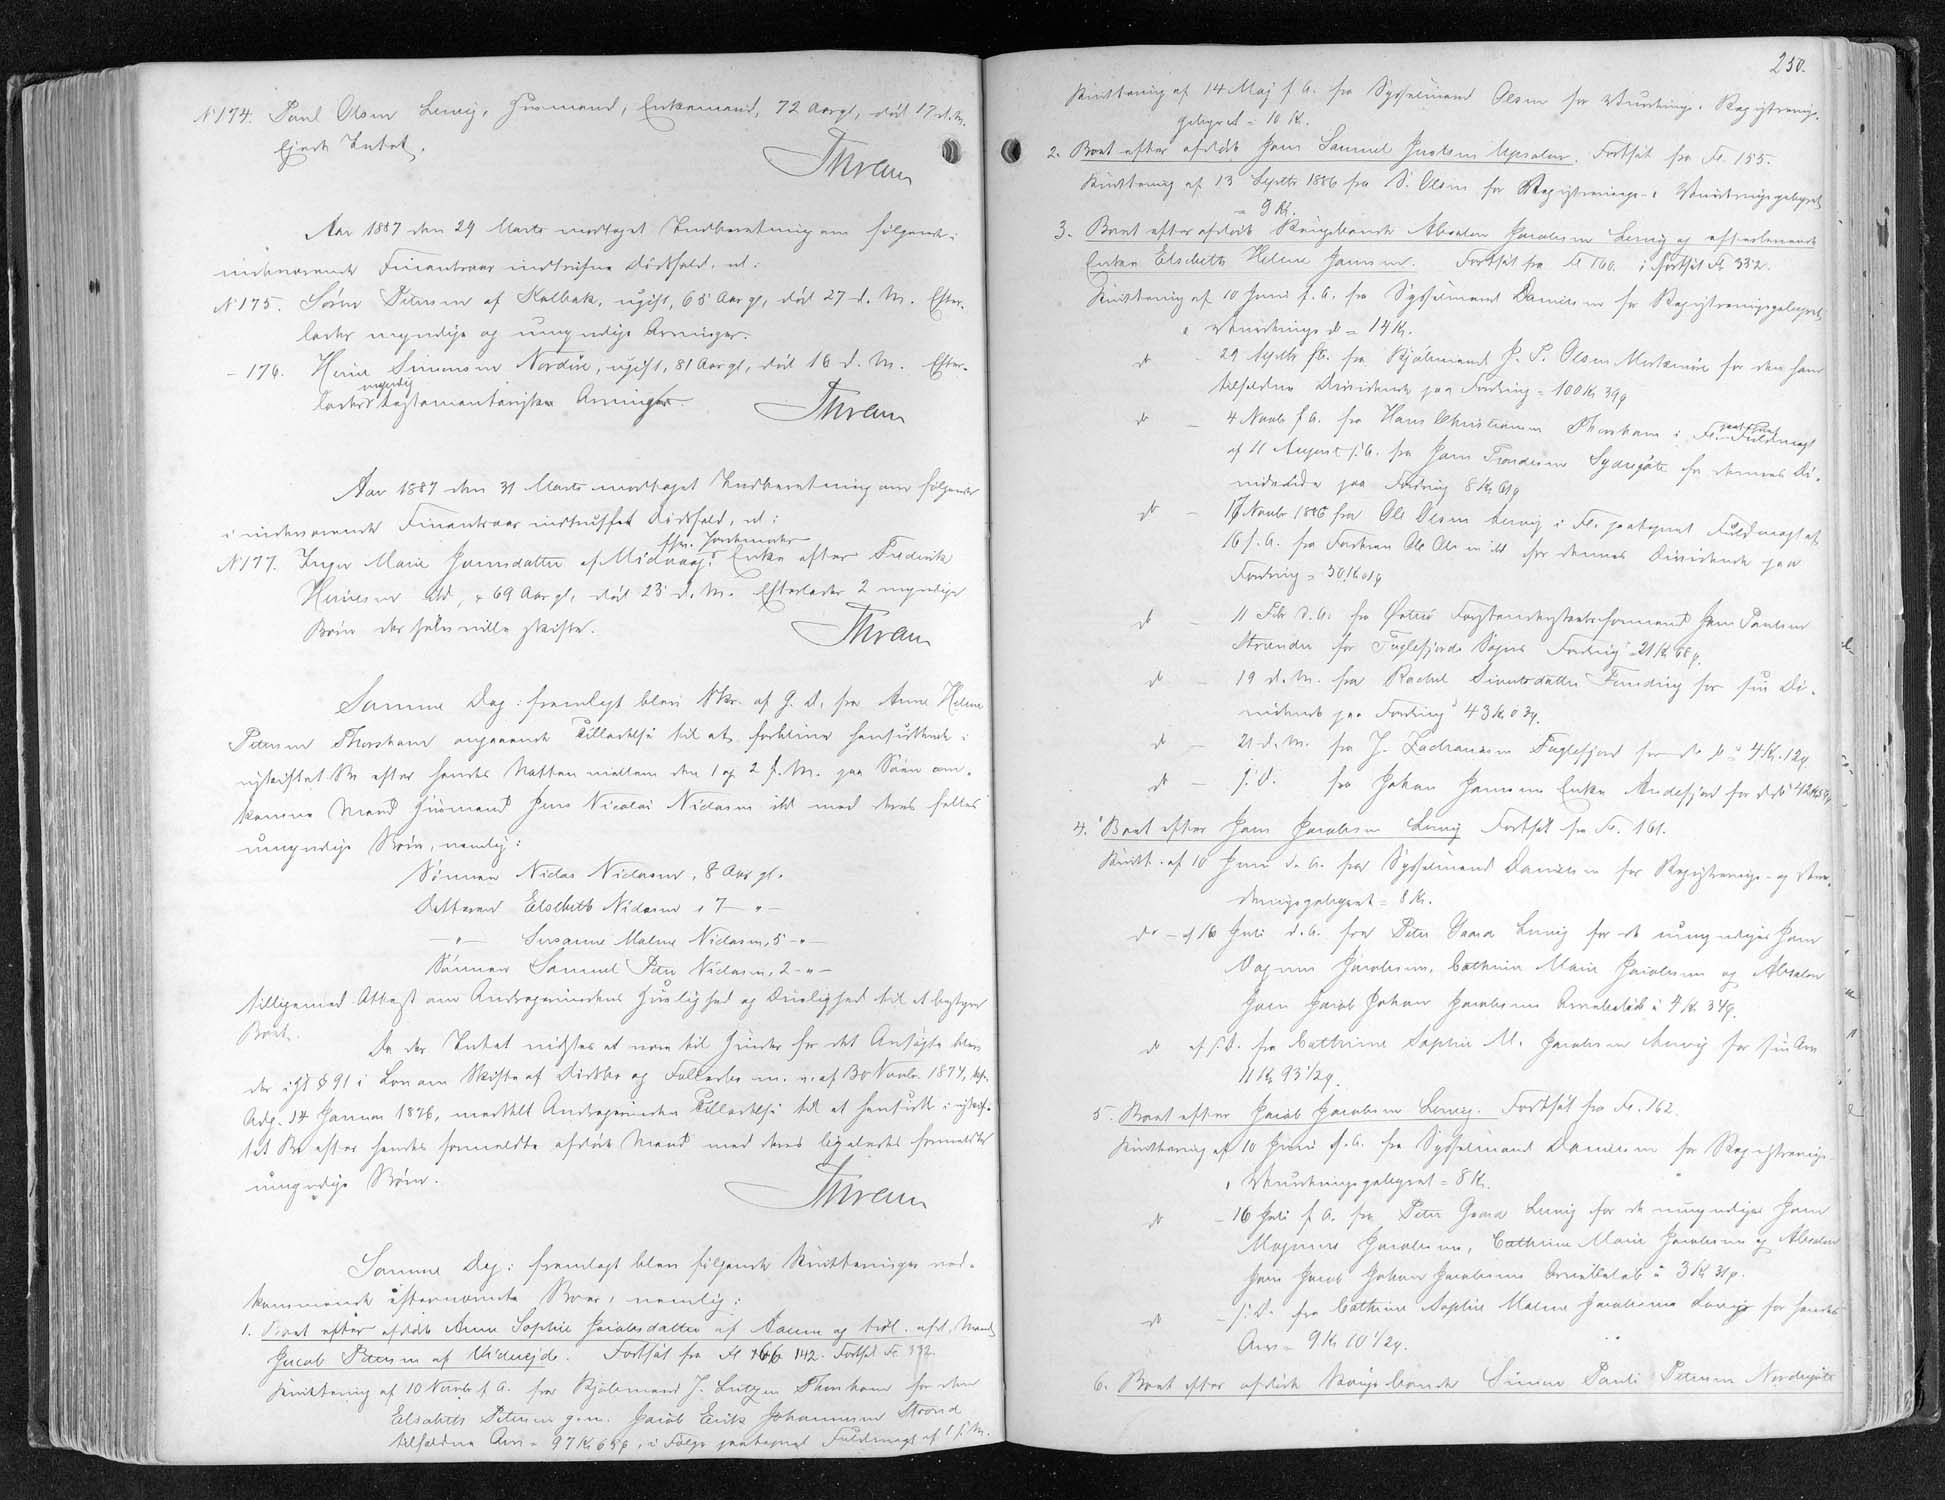 № 174. Paul Olsen Lervig, Huusmand, Enkemand, 72 Aar gl., død 17 d. M.
Ejede Intet.
Thran
Aar 1887 den 29 Marts modtaget Indberetning om følgende i
indeværende Finantsaar indtrufne Dødsfald, nl:
№ 175. Søren Petersen af Kalbak, ugift, 65 Aar gl, død 27 d. M. Efter-
lader myndige og umyndige Arvinger.
- 176. Simonsen Nordøre, ugift, 81 Aar gl, død 16 d. M. Efter-
myndig
lader testamentarisk Arving.
Thran
Aar 1887 den 31 Marts modtaget Indberetning om følgende
i indeværende Finantsaar indtruffet Dødsfald, nl:
fhv. Jordemoder
№ 177. Inger Marie Joensdatter af Midvaag, Enke efter Frederik
ibd, 69 Aar gl, død 23 d. M. Efterlader 2 myndige
Børn der selv ville skifte.
Thran
Samme Dag: fremlagt blev Skr. af G. D. fra Anne Helene
Petersen Thorshavn angaaende Tilladelse til at forblive hensiddende i
uskiftet Bo efter hendes Natten mellem den 1 og 2 f. M. paa Søen om-
komne Mand Huusmand Jens Nicolai Niclasen ibd med deres fælles
umyndige Børn, nemlig:
Sønnen Niclas Niclasen, 8 Aar gl.
Datteren Elsebeth Niclasen, 7 — " —
— " — Susanne Malene Niclasen, 5 — " —
Sønnen Samuel Peter Niclasen, 2 — " —
tilligemed Attest om Andragerindens Huuslighed og Duelighed til at bestyre
Boet.
Da der Intet vidstes at være til Hinder for det Ansøgte blev
der iflg § 91 i Lov om Skifte af Dødsbo og Fællesbo m. v. af 30 Novbr. 1874,
Adg. 14 Januar 1876, meddelt Andragerinden Tilladelse til at hensidde i uskif-
tet Bo efter hendes formeldte afdøde Mand med deres ligeledes formeldte
umyndige Børn.
Thran
Samme Dag: fremlagt blev følgende Kvitteringer ved-
kommende efternævnte Boer, nemlig:
1. Boet efter afdøde Anne Sophie Jacobsdatter af og tidl. afd. Mand
Jacob Petersen af Viderejde. Fortsat fra Fl 142. Fortsat Fl. 332.
Kvittering af 10 Novbr f. A. fra Kjøbmand J. Lutzen Thorshavn for den
Elsebeth Petersen gn. Jacob Erik Johannesen Strand
tilfaldne Arv = 97 Kr 65 ø, i Følge paategnet Fuldmagt af 1 f. M.
250.
Kvittering af 14 Maj f. A. fra Sysselmand Olsen for Vurderings- & Registrerings-
gebyret = 10 Kr.
2. Boet efter afdøde Joen Samuel Justesen Upsalar. Fortsat fra Fl. 155.
Kvittering af 13 Septbr 1886 fra S. Olsen for Registrerings- & Vurderingsgebyret
= 9 Kr.
3. Boet efter afdøde Kongsbonde Absalon Jacobsen Lervig og efterlevende
Enke Elsebeth Helene Joensen. Fortsat fra Fl 160. Fortsat Fl 332.
Kvittering af 10 Juni f. A. fra Sysselmand Danielsen for Registreringsgebyret
& Vurderings do = 14 Kr.
do - 29 Septbr f.A. fra Kjøbmand J. P. Olsen for den ham
tilfaldne Dividende paa Fordring = 100 Kr 39 ø
do — 4 Novbr f. A. fra Hans Christiansen Thorshavn i Fl. paategnet Fuldmagt
af 11 August f. A. fra Joen Trondesen Sydregøte for dennes Di-
vidende paa Fordring 8 Kr 61 ø
do — 17 Novbr 1886 fra Ole Olsen Lervig i Fl. paategnet Fuldmagt af
16 f. A. fra Faderen Ole Olsen ibd for dennes Dividende paa
Fordring = 30 Kr 01 ø
do — 11 Febr d. A. fra Østerø Forstanderskabsformand Joen Poulsen
Strænder for Fuglefjords Sogns Fordring = 21 Kr 68 ø.
do — 19 d. M. fra Rachel Funding for sin Di-
vidende paa Fordring = 43 Kr 03 ø.
do — 21 d. M. fra J. Zachariasen Fuglefjord for do do = 4 Kr. 12 ø
do — s. D. fra Johan Joensens Enke Andefjord for do do
4. Boet efter Joen Jacobsen Lervig Fortsat fra Fl. 161.
Kvitt. af 10 Juni d. A. fra Sysselmand Danielsen for Registrerings- og Vur-
deringsgebyret = 8 Kr.
do — af 16 Juli d. A. fra Peter Gaard Lervig for de umyndige Joen
Magnus Jacobsens, Cathrine Marie Jacobsens og Absalon
Joen Jacob Johan Jacobsens Arvebeløb à 4 Kr 34 ø.
do af s. D. fra Cathrine Sophie M. Jacobsen Lervig for sin Arv
11 Kr 93 1/2 ø.
5. Boet efter Jacob Jacobsen Lervig. Fortsat fra Fl. 162.
Kvittering af 10 Juni d. A. fra Sysselmand Danielsen for Registrerings-
& Vurderingsgebyret = 8 Kr.
do — 16 Juli f. A. fra Peter Gaard Lervig for de umyndige Joen
Magnus Jacobsens, Cathrine Marie Jacobsens og Absalon
Joen Jacob Johan Jacobsens Arvebeløb à 3 Kr 31 ø.
do — s. D. fra Cathrine Sophie Malene Jacobsen Lervig for hendes
Arv = 9 Kr 10 1/2 ø.
6. Boet efter afdøde Kongsbonde Simon Pauli Petersen Nordregøte